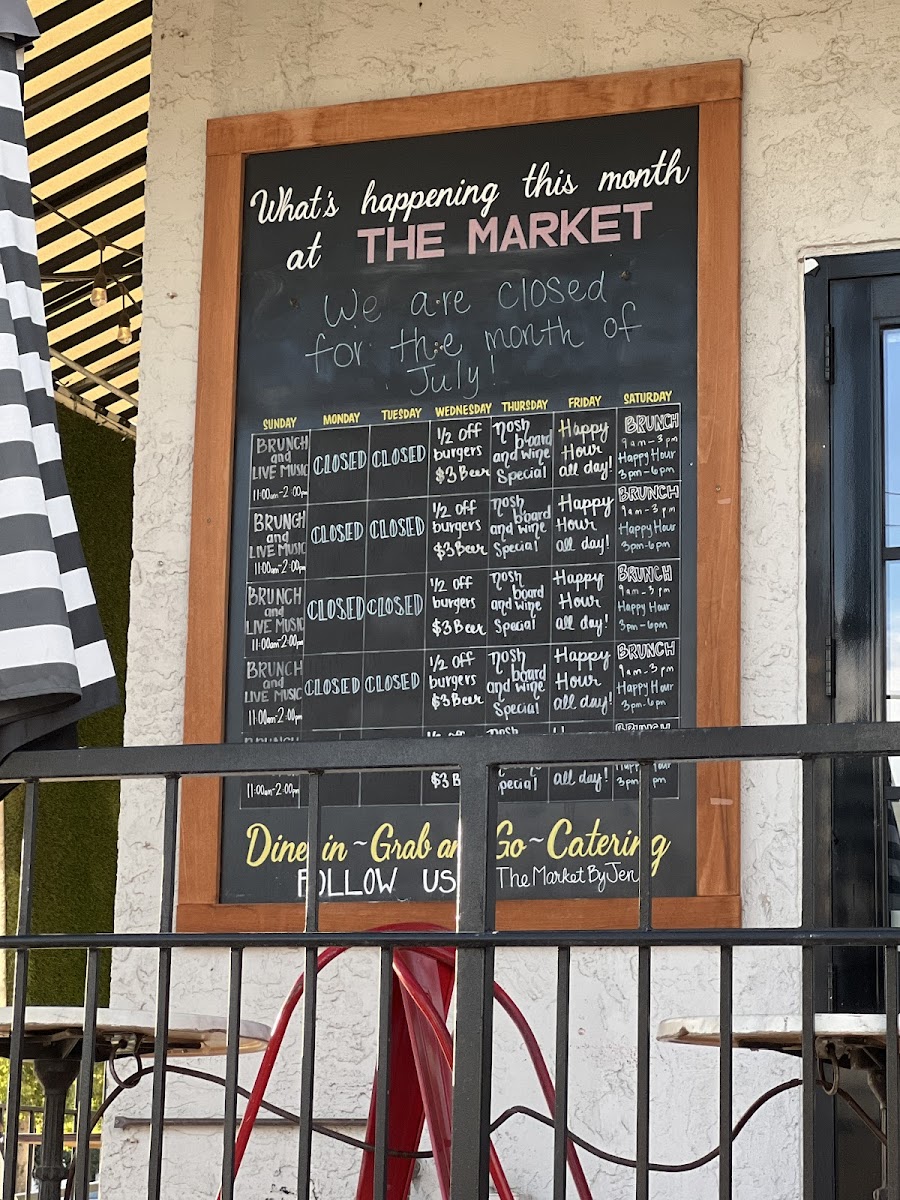 What's happening this month
at THE MARKET
We are closed
for the month of
July!
SUNDAY MONDAY TUESDAY WEDNESDAY THURSDAY FRIDAY SATURDAY
BRUNCH and LIVE MUSIC 11:00am-2:00pm CLOSED CLOSED 1/2 off burgers $3 Beer nosh board and wine Special Happy Hour all day! BRUNCH 9am-3pm Happy Hour 3pm-6pm
BRUNCH and LIVE MUSIC 11:00am-2:00pm CLOSED CLOSED 1/2 off burgers $3 Beer nosh board and wine Special Happy Hour all day! BRUNCH 9am-3pm Happy Hour 3pm-6pm
BRUNCH and LIVE MUSIC 11:00am-2:00pm CLOSED CLOSED 1/2 off burgers $3 Beer nosh board and wine Special Happy Hour all day! BRUNCH 9am-3pm Happy Hour 3pm-6pm
BRUNCH and LIVE MUSIC 11:00am-2:00pm CLOSED CLOSED 1/2 off burgers $3 Beer nosh board and wine Special Happy Hour all day! BRUNCH 9am-3pm Happy Hour 3pm-6pm
11:00am-2:00pm $3 all day!
Dine in ~ Grab Go ~ Catering
FOLLOW US TheMarketByJen